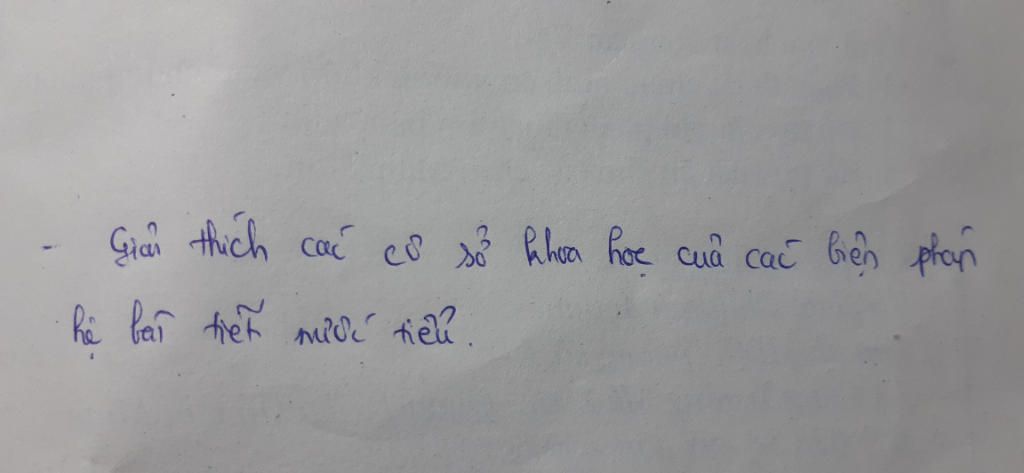 - Giải thích các cơ sở khoa học của các biện pháp
hệ bài tiết nước tiểu.